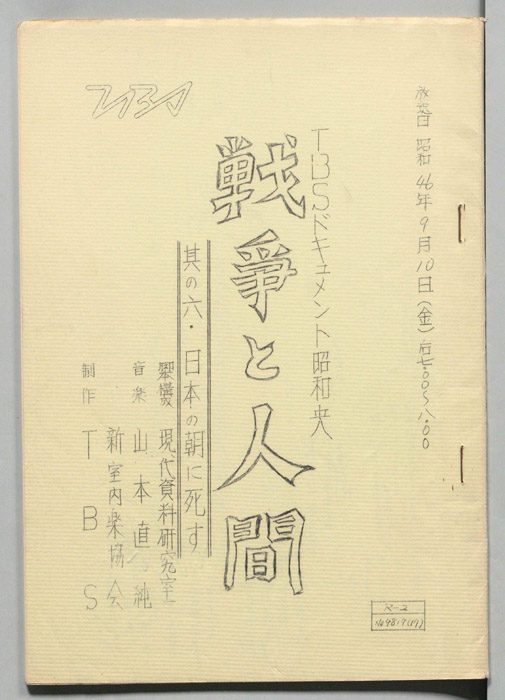 放送日 昭和46年9月10日(金)后七・〇〇〜八・〇〇
TBSドキュメント昭和史
戦争と人間
其の六・日本の朝に死す
現代資料研究室
音楽 山本直純
新室内楽協会
制作 TBS
TBS
R-2